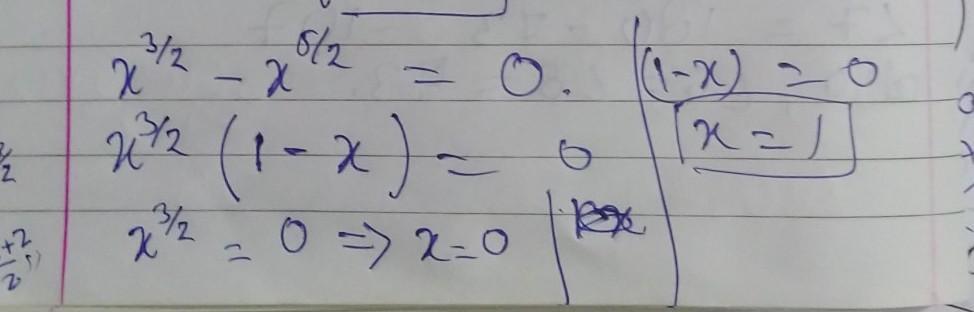 x^{3/2} - x^{5/2} = 0.
x^{3/2} (1 - x) = 0
x^{3/2} = 0 => x = 0
(1-x) = 0
x = 1